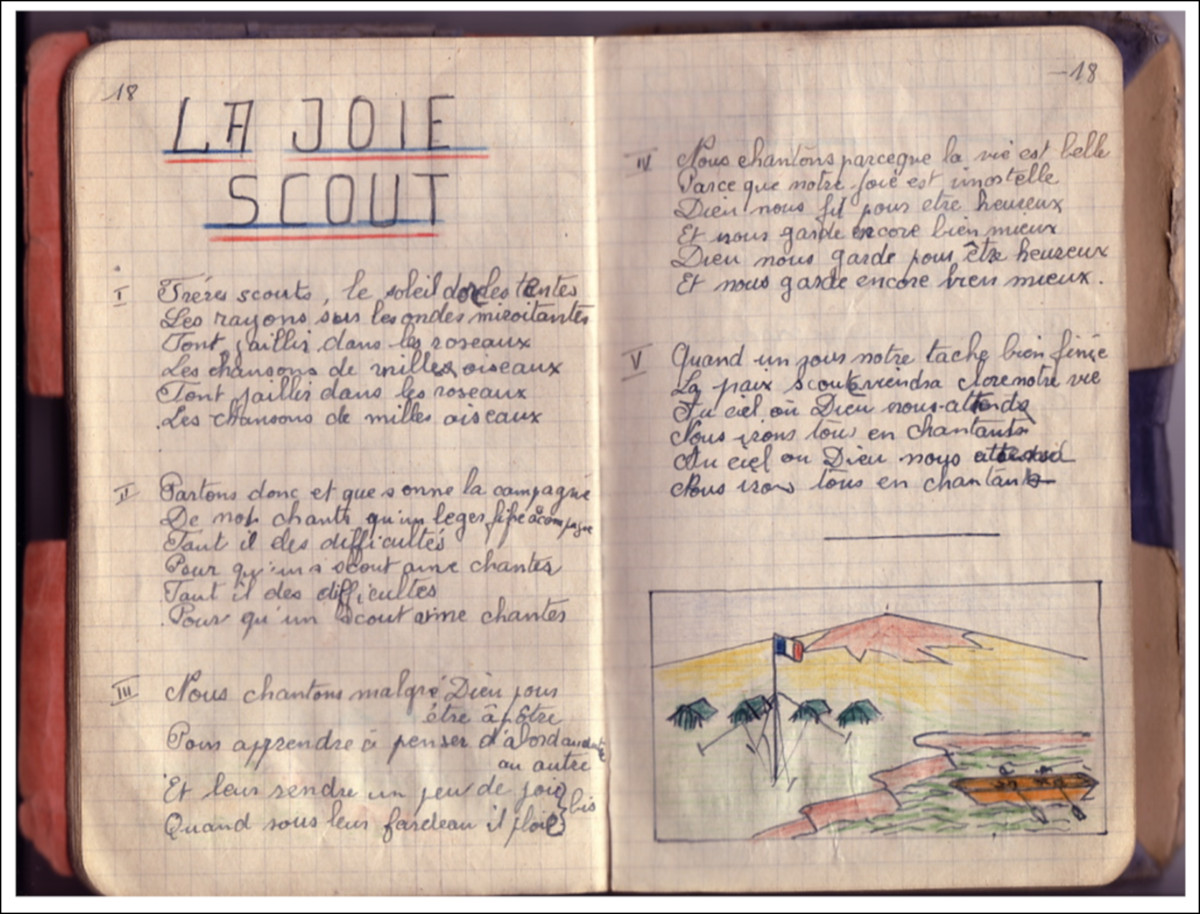 18
LA JOIE
SCOUT
I Fréres scouts, le soleil dore les tentes
Les rayons sur les ondes miroitantes
Font jaillir dans les roseaux
Les chansons de milles oiseaux
Font jaillir dans les roseaux
Les chansons de milles oiseaux
II Partons donc et que sonne la campagne
De nos chants qu'un leger fifre acompagne
Faut il des difficultés
Pour qu'un scout aime chanter
Faut il des difficultes
Pour qu'un Scout aime chanter
III Nous chantons malgré Dieu pour
être âpôtre
Pour apprendre à penser d'abord
au autre
Et leur rendre un peu de joie
Quand sous leur fardeau il ploie
bis
-18
IV Nous chantons parceque la vie est belle
Parce que notre joie est imortelle
Dieu nous fit pour etre heureux
Et nous garde encore bien mieux
Dieu nous garde pour être heureux
Et nous garde encore bien mieux.
V Quand un jour notre tache bien finie
La paix scoute viendra clore notre vie
Au ciel où Dieu nous attends
Nous irons tous en chantants
Au ciel ou Dieu nous attend
Nous irons tous en chantant